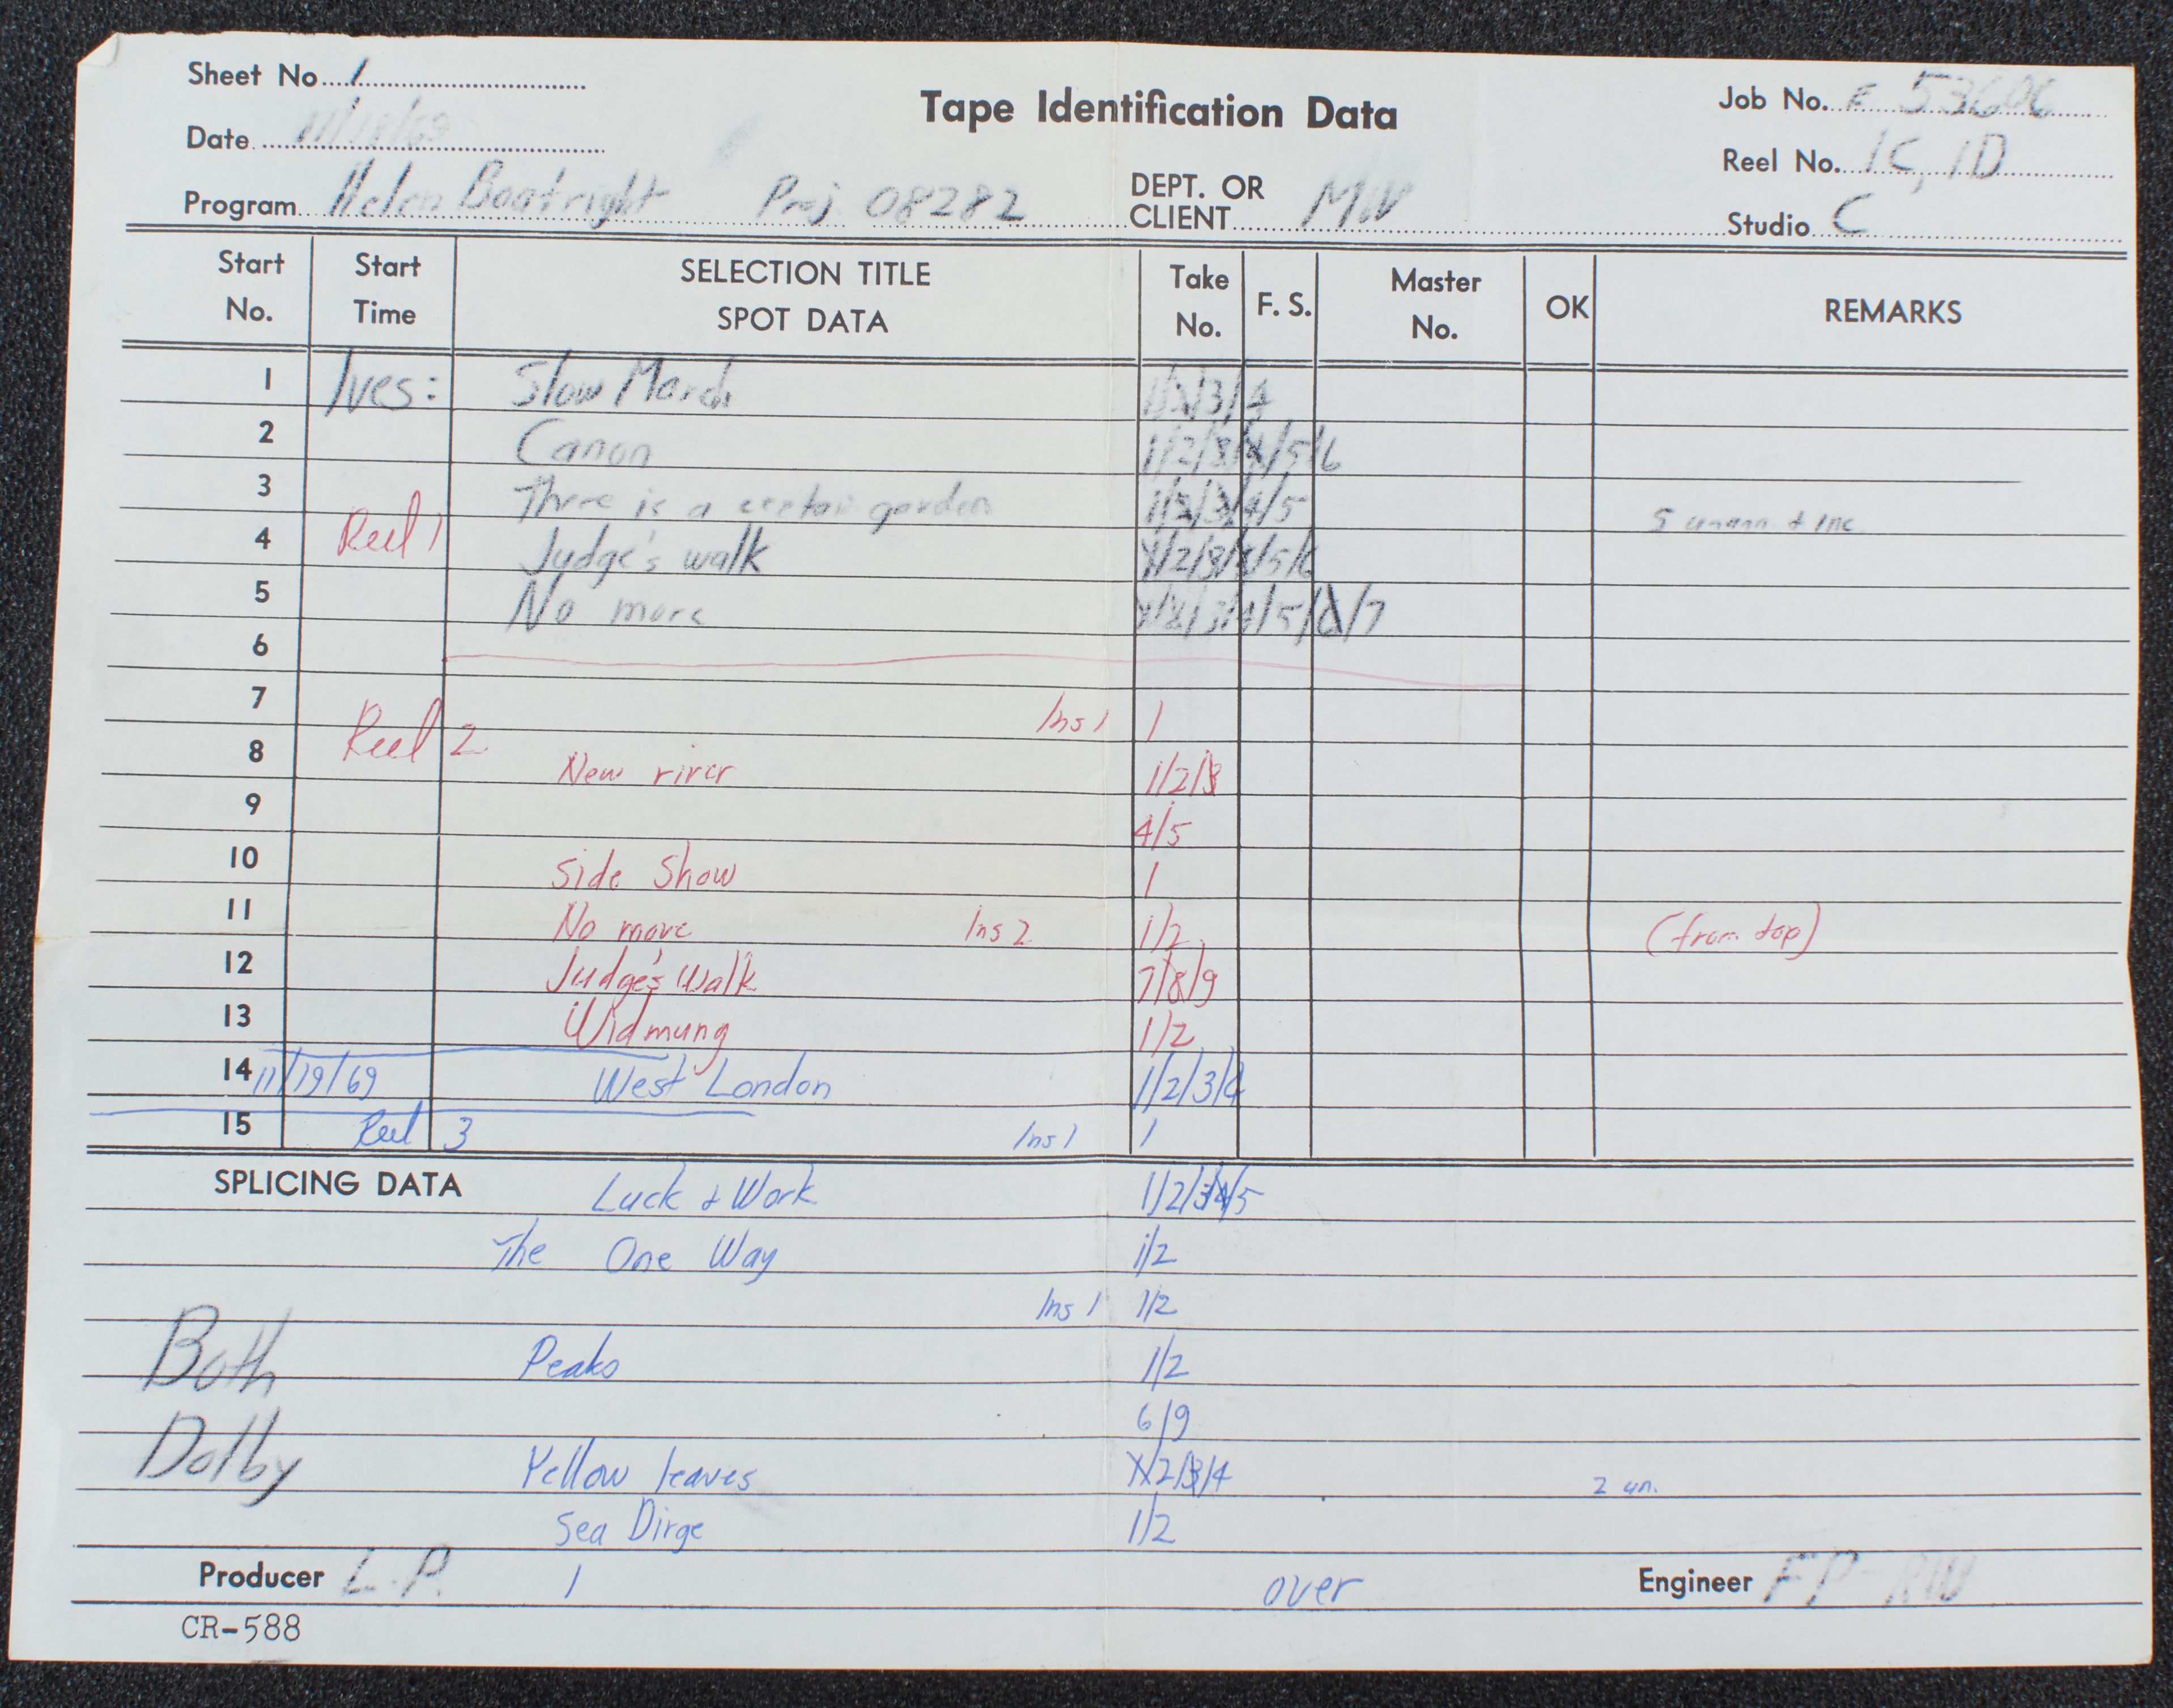 Sheet No. 1
Date 11/18/69
Tape Identification Data
Job No. 53606
Reel No. 1C, 1D
Program Helen Boatright Proj 08282 DEPT. OR CLIENT MW
Studio C
Start No. Start Time SELECTION TITLE SPOT DATA Take No. F. S. Master No. OK REMARKS
1 Ives: Slow March 1/2/3/4
2 Canon 1/2/3/4/5/6
3 There is a certain garden 1/2/3/4/5
4 Reel 1 Judge's walk 1/2/3/4/5/6
5 No more 1/2/3/4/5/6/7
6
7 Ins 1 1
8 Reel 2 New river 1/2/3
9 4/5
10 Side Show 1
11 No more Ins 2 1/2 (from top)
12 Judge's Walk 7/8/9
13 Widmung 1/2
14 11/19/69 West London 1/2/3/4
15 Reel 3 Ins 1 1
SPLICING DATA Luck & Work 1/2/3/4/5
The One Way 1/2
Ins 1 1/2
Both Peaks 1/2
6/9
Dolby Yellow leaves 1/2/3/4 2 un.
Sea Dirge 1/2
Producer L.P. 1 over Engineer FP-RW
CR-588